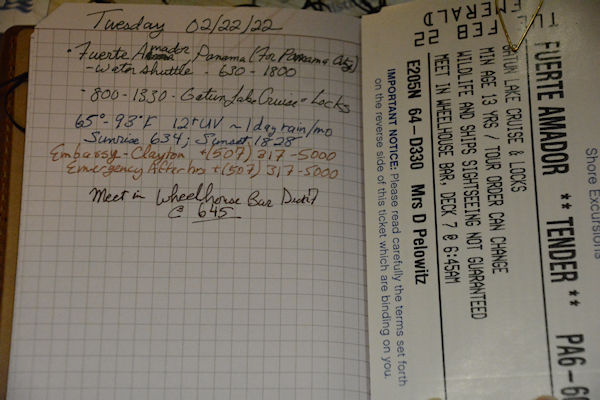 Tuesday 02/22/22
• Fuerte Amador, Panama (For Panama City)
- Water shuttle - 630 - 1800
- 800 - 1330 - Gatun Lake Cruise & Locks
65° - 93°F 12+UV ~ 1 day rain/mo
Sunrise 634; Sunset 1828
Embassy - Clayton +(507) 317-5000
Emergency After hrs +(507) 317-5000
Meet in Wheelhouse Bar Deck 7
@ 645
Shore Excursions
FUERTE AMADOR ** TENDER ** PA6-6
GATUN LAKE CRUISE & LOCKS
MIN AGE 13 YRS / TOUR ORDER CAN CHANGE
WILDLIFE AND SHIPS SIGHTSEEING NOT GUARANTEED
MEET IN WHEELHOUSE BAR, DECK 7 @ 6:45AM
E205N 64-D330 Mrs D Pelowitz
IMPORTANT NOTICE: Please read carefully the terms set forth
on the reverse side of this ticket which are binding on you.
EMERALD
FEB 22